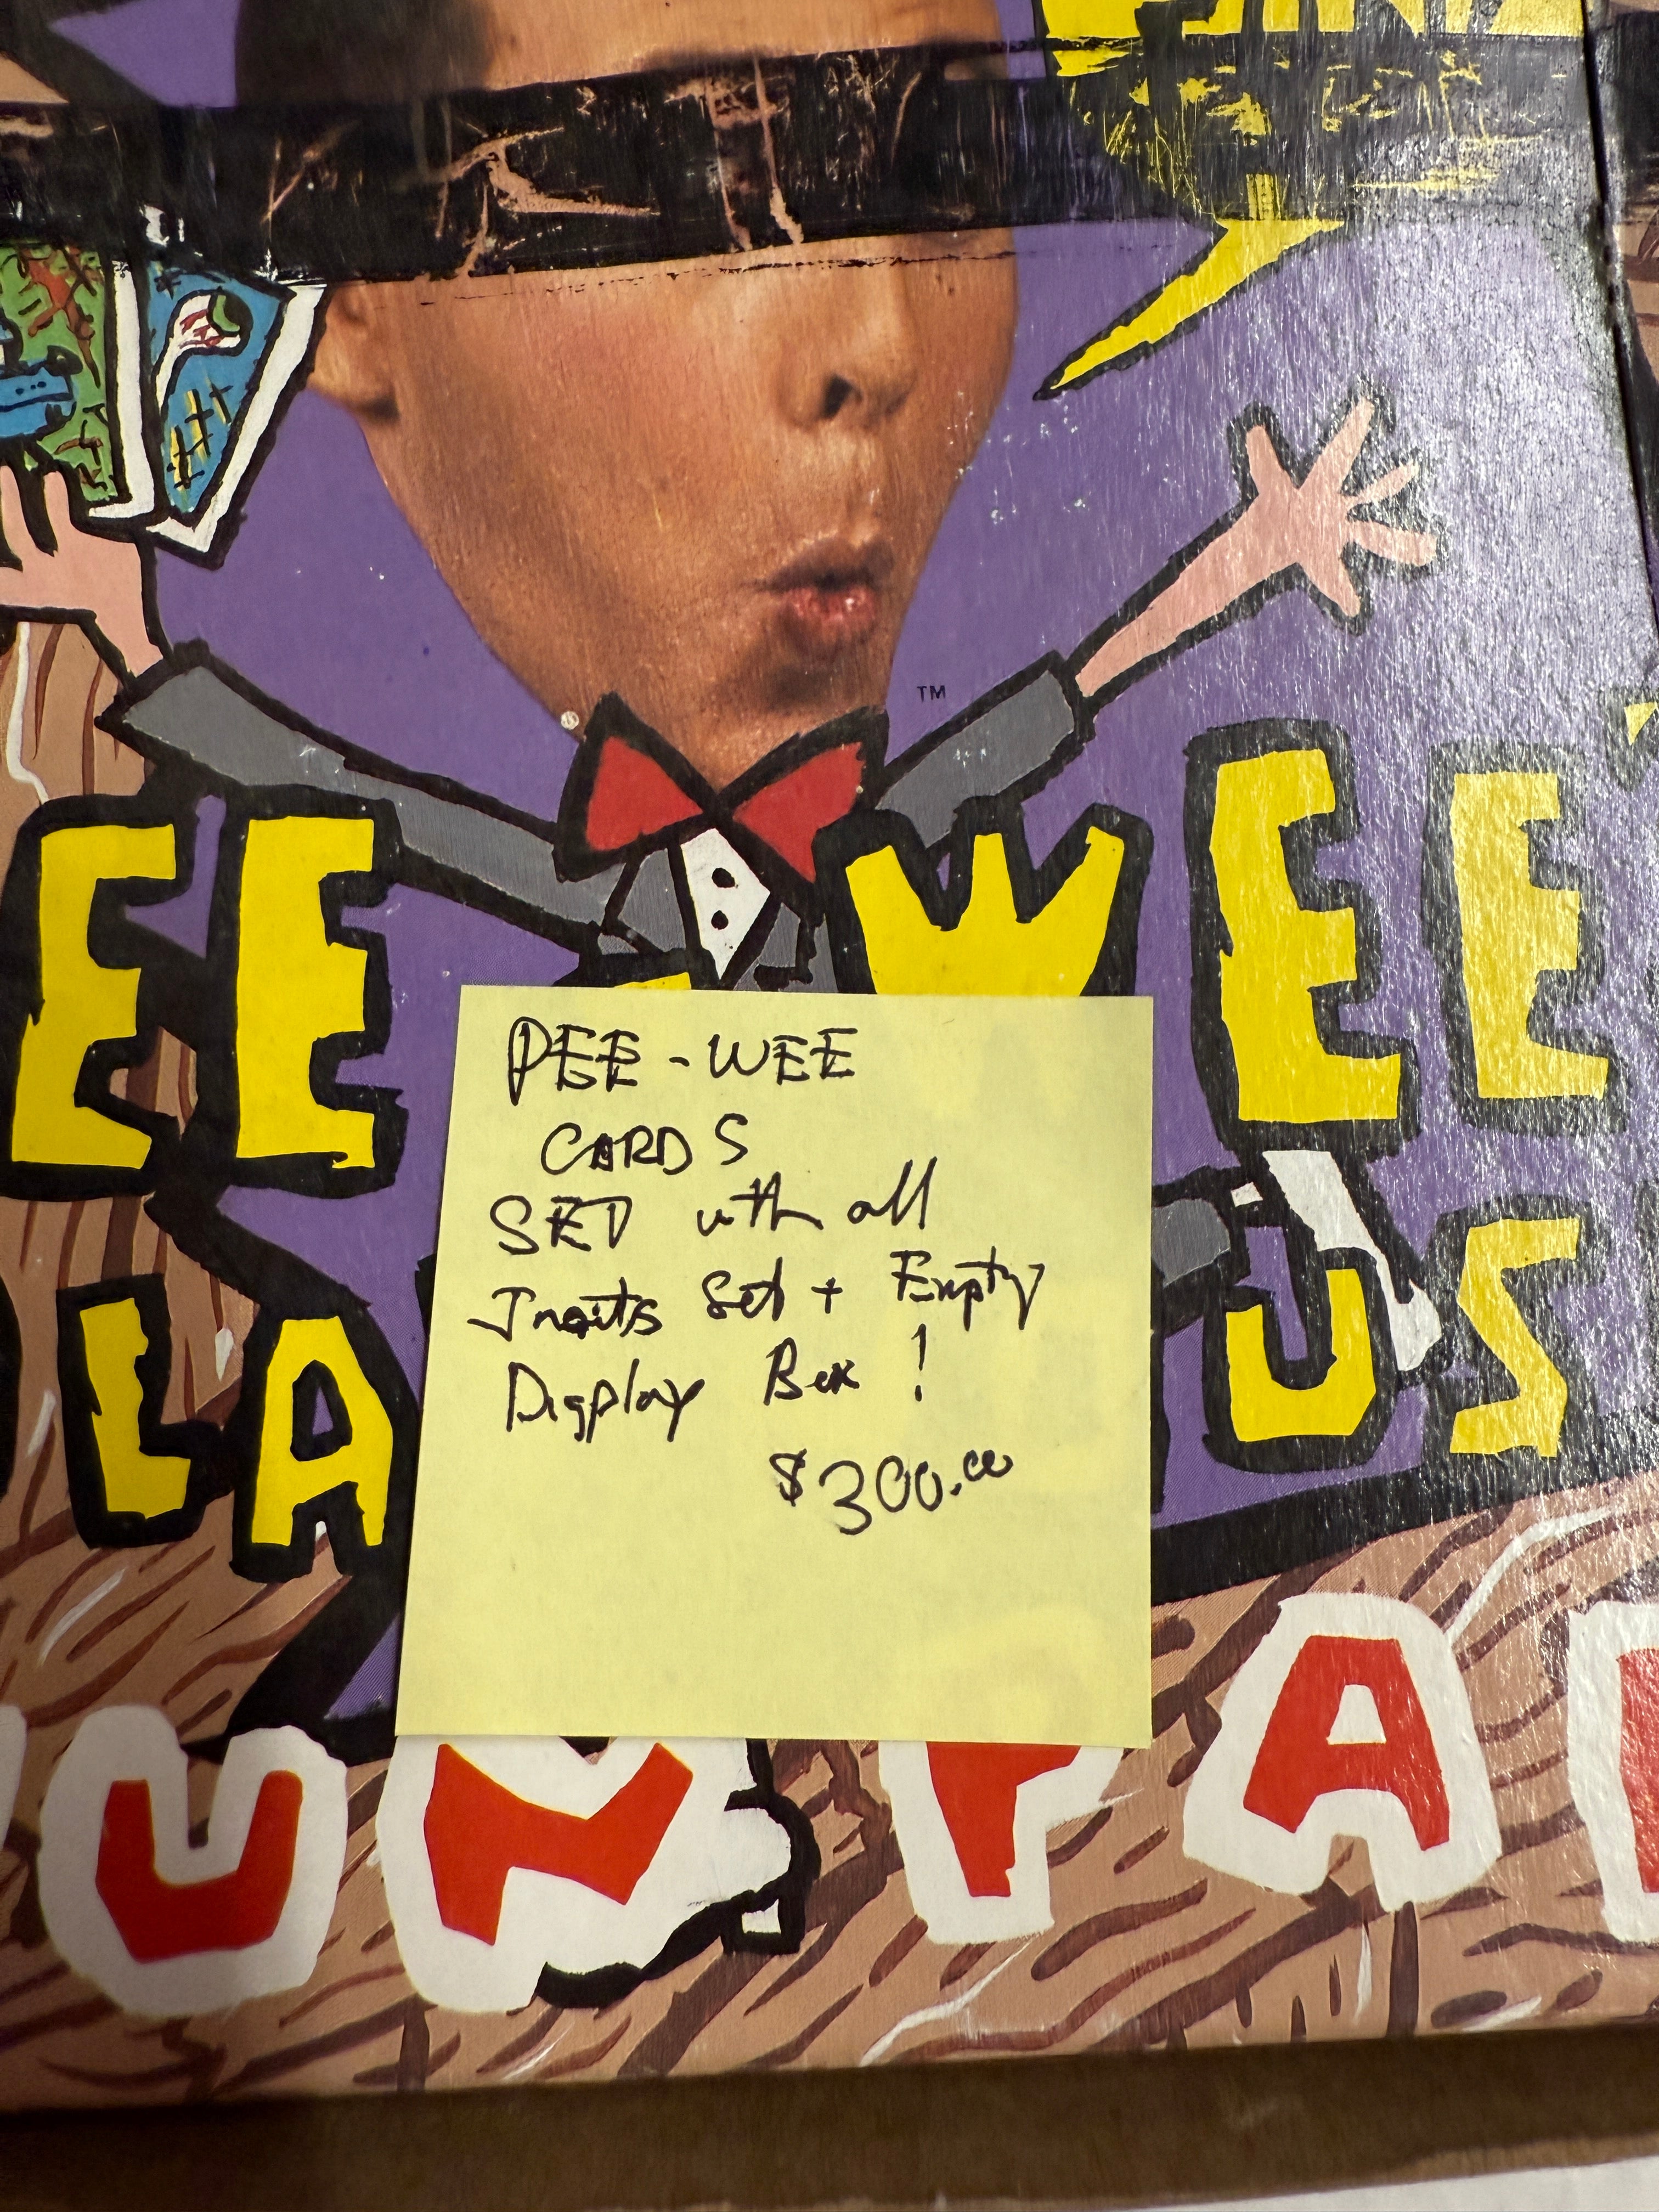 TM
EE-WEE'
LA
US
PEE-WEE
CARDS
SET with all
Inserts Set + Empty
Display Box!
$300.00
UN PA